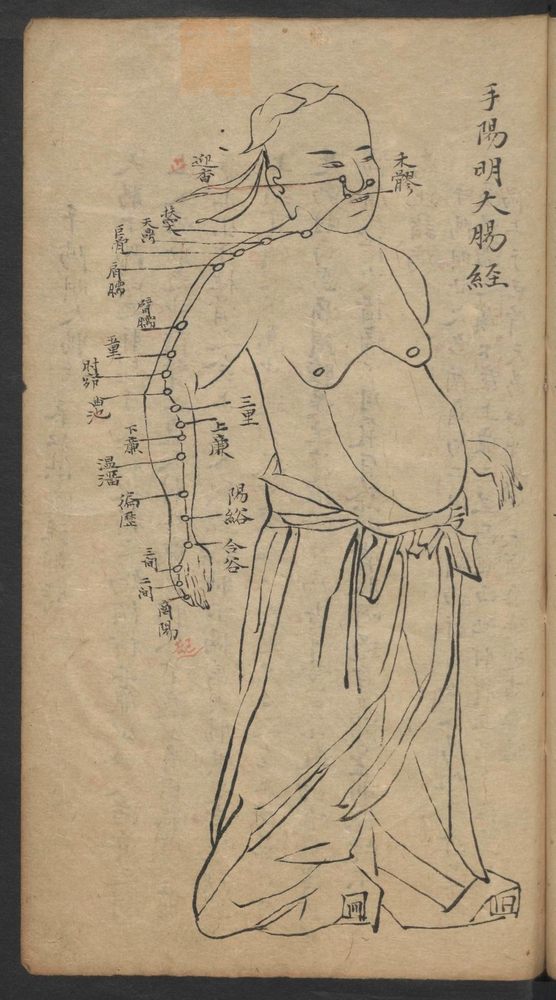 手陽明大腸経
禾髎
迎香
扶突
天鼎
巨骨
肩髃
臂臑
五里
肘窌
曲池
三里
上廉
下廉
温溜
偏歷
陽谿
合谷
三间
二间
商陽